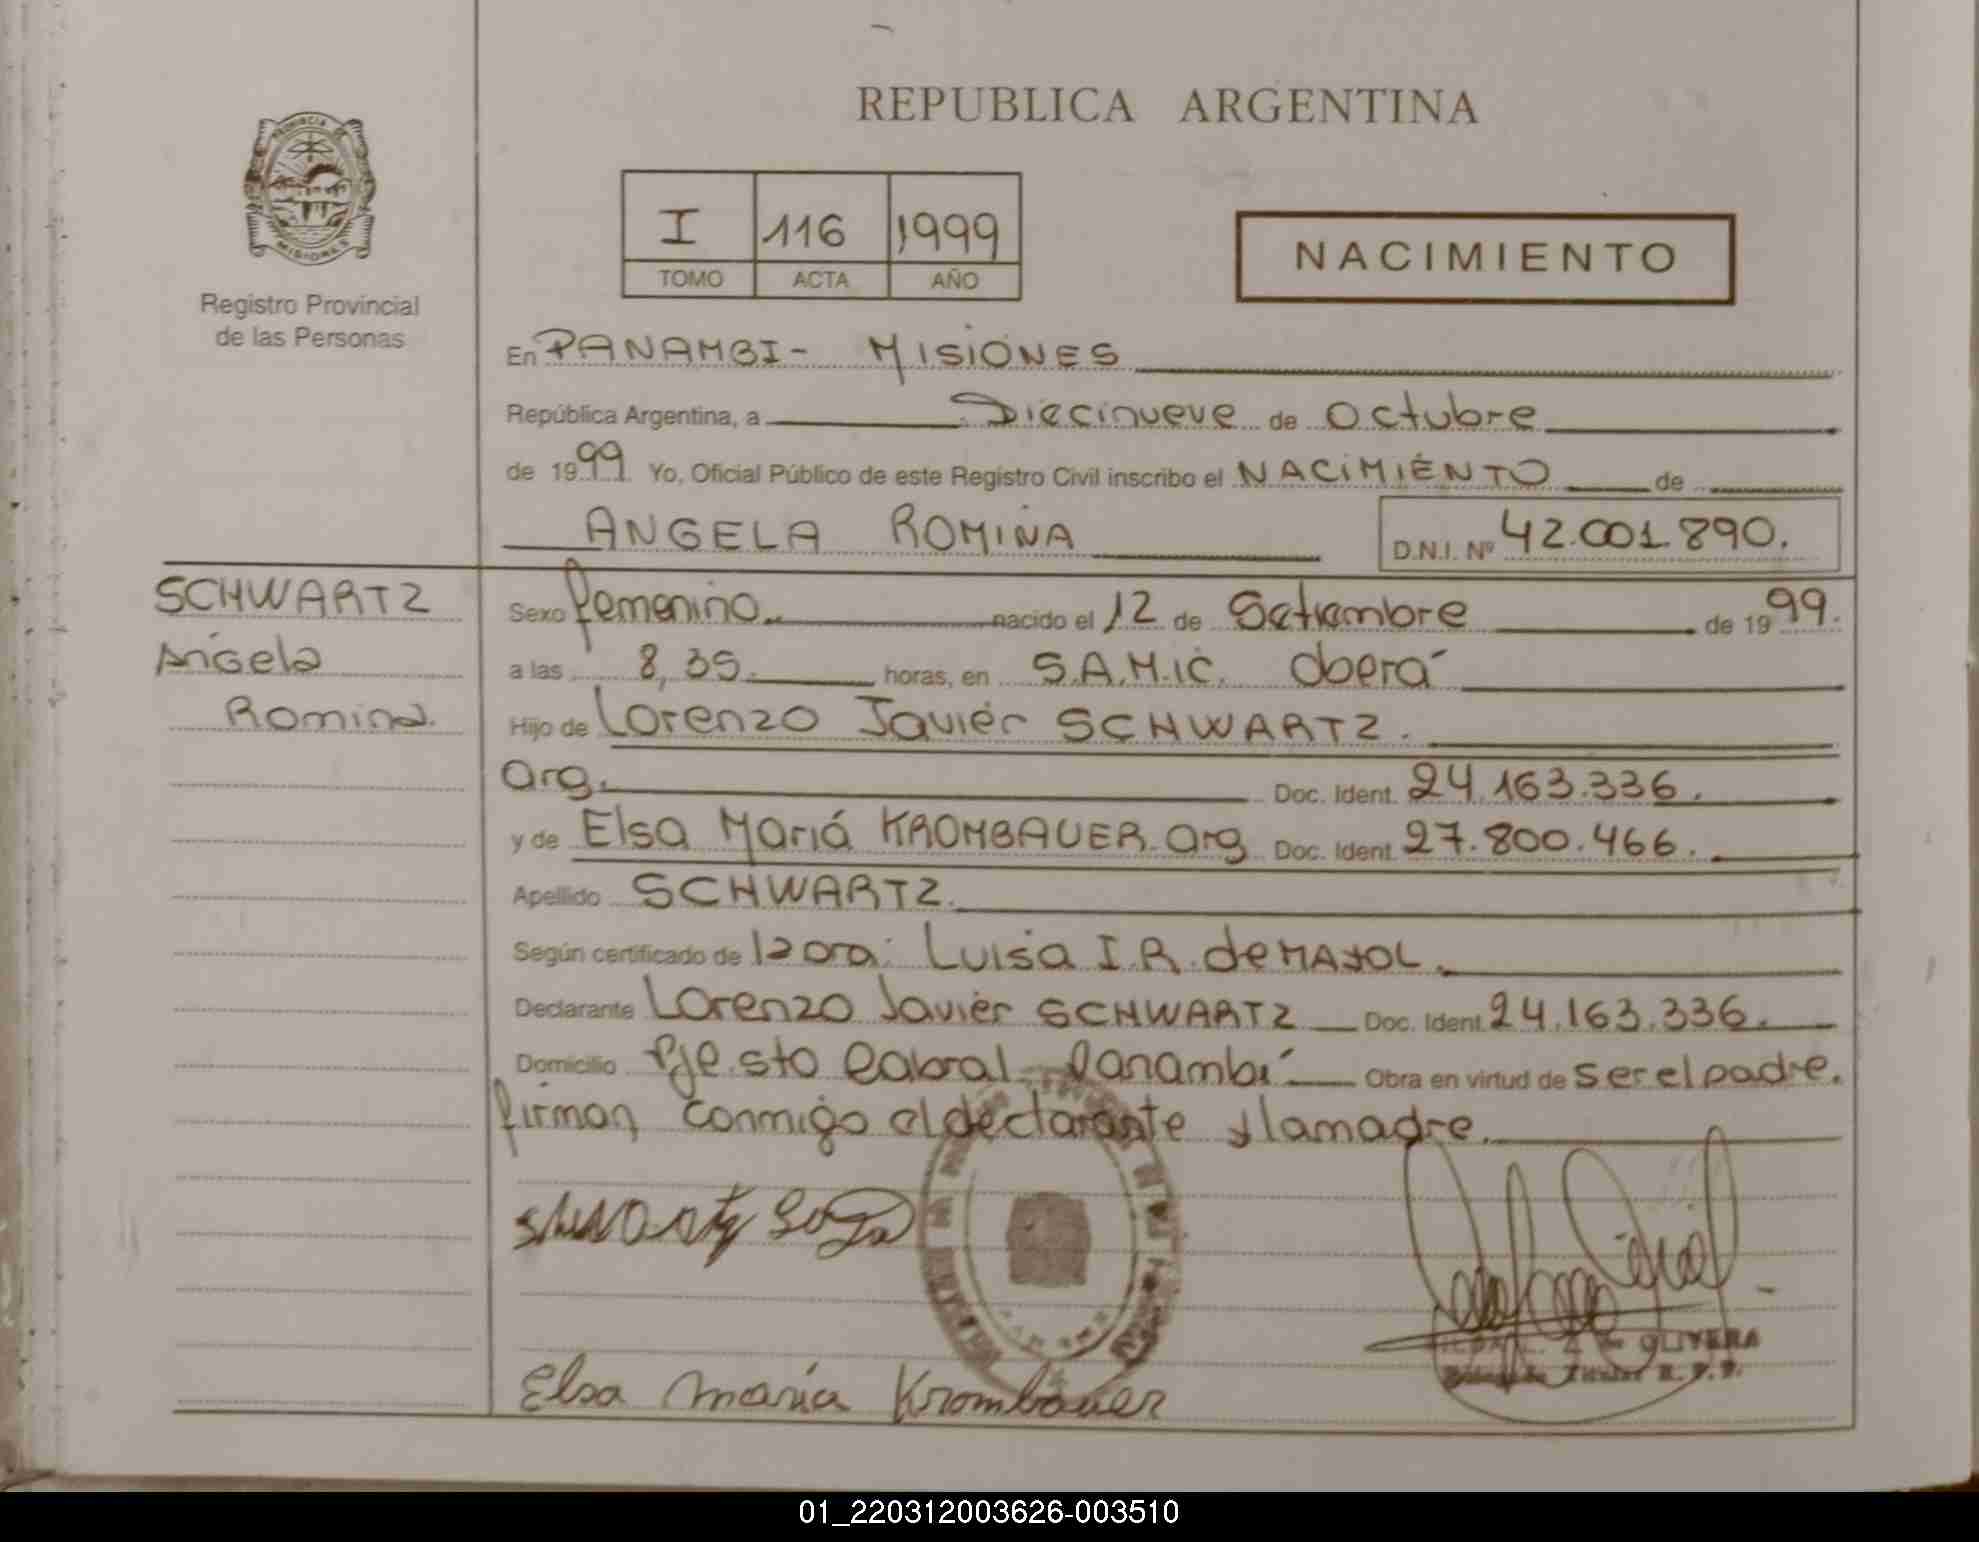 REPUBLICA ARGENTINA
PROVINCIA DE
MISIONES
Registro Provincial
de las Personas
I 116 1999
TOMO ACTA AÑO
NACIMIENTO
En PANAMBI - MISIONES
República Argentina, a Diecinueve de Octubre
de 1999 Yo, Oficial Público de este Registro Civil inscribo el NACIMIENTO de
ANGELA ROMINA D.N.I. Nº 42.001.890.
SCHWARTZ
Angela
Romina.
Sexo femenino. nacido el 12 de Setiembre de 1999.
a las 8,35. horas, en S.A.M.IC. Oberá
Hijo de Lorenzo Javier SCHWARTZ.
Arg. Doc. Ident. 24.163.336.
y de Elsa María KROMBAUER. Arg Doc. Ident. 27.800.466.
Apellido SCHWARTZ.
Según certificado de Luisa I.R. de MAYOL.
Declarante Lorenzo Javier SCHWARTZ Doc. Ident. 24.163.336.
Domicilio Pje. Sto Cabral Panambí Obra en virtud de ser el padre.
firman conmigo el declarante y la madre.
Elsa María Krombauer
OLIVERA
01_220312003626-003510